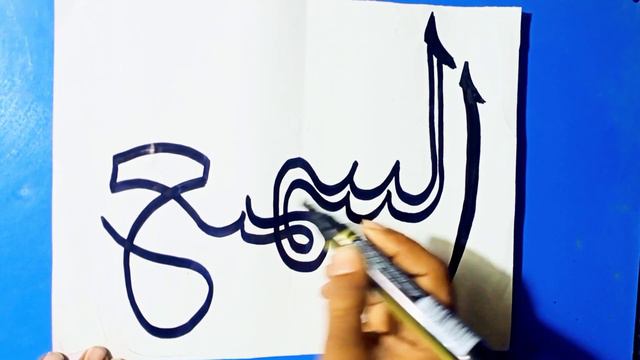 السميع